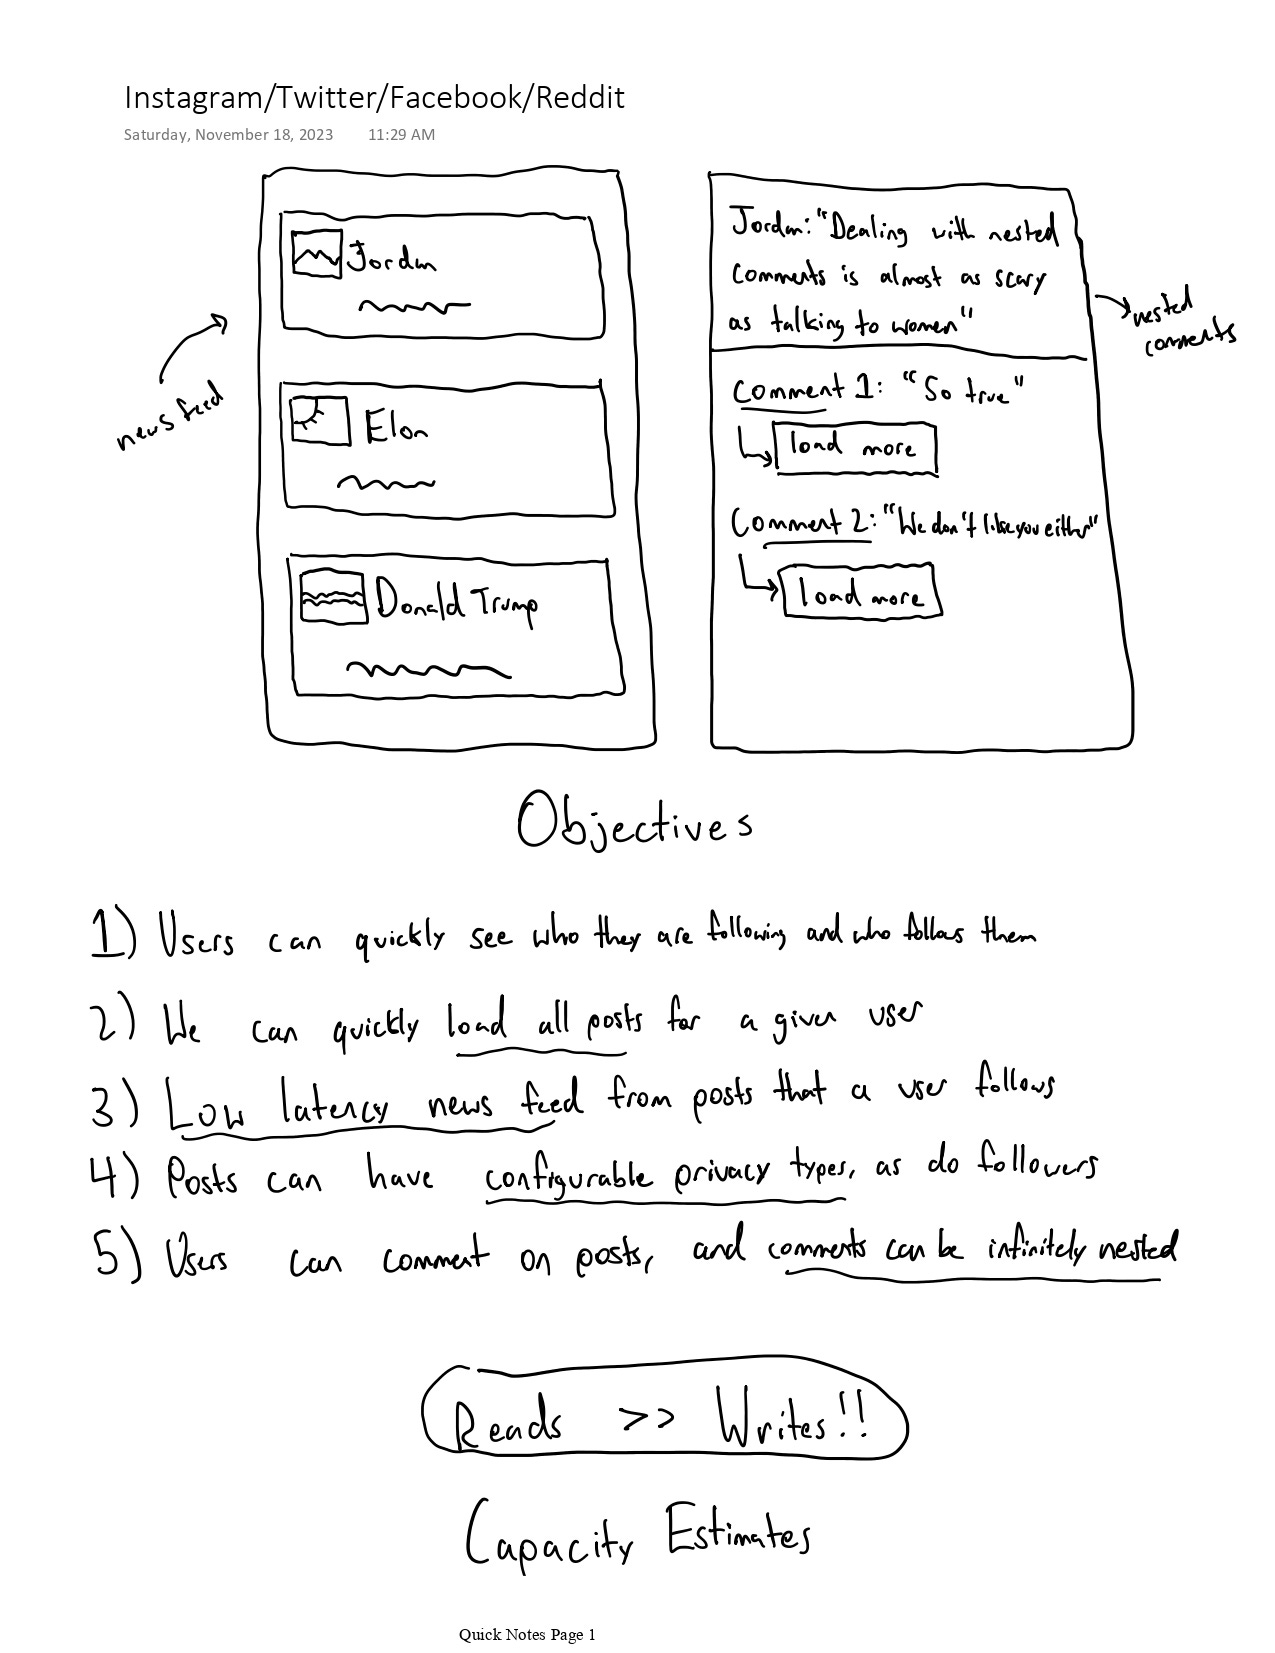 Instagram/Twitter/Facebook/Reddit
Saturday, November 18, 2023 11:29 AM
news feed
Jordan
Elon
Donald Trump
Jordan: "Dealing with nested
comments is almost as scary
as talking to women"
Comment 1: "So true"
load more
Comment 2: "We don't like you either"
load more
nested
comments
Objectives
1) Users can quickly see who they are following and who follows them
2) We can quickly load all posts for a given user
3) Low latency news feed from posts that a user follows
4) Posts can have configurable privacy types, as do followers
5) Users can comment on posts, and comments can be infinitely nested
Reads >> Writes!!
Capacity Estimates
Quick Notes Page 1